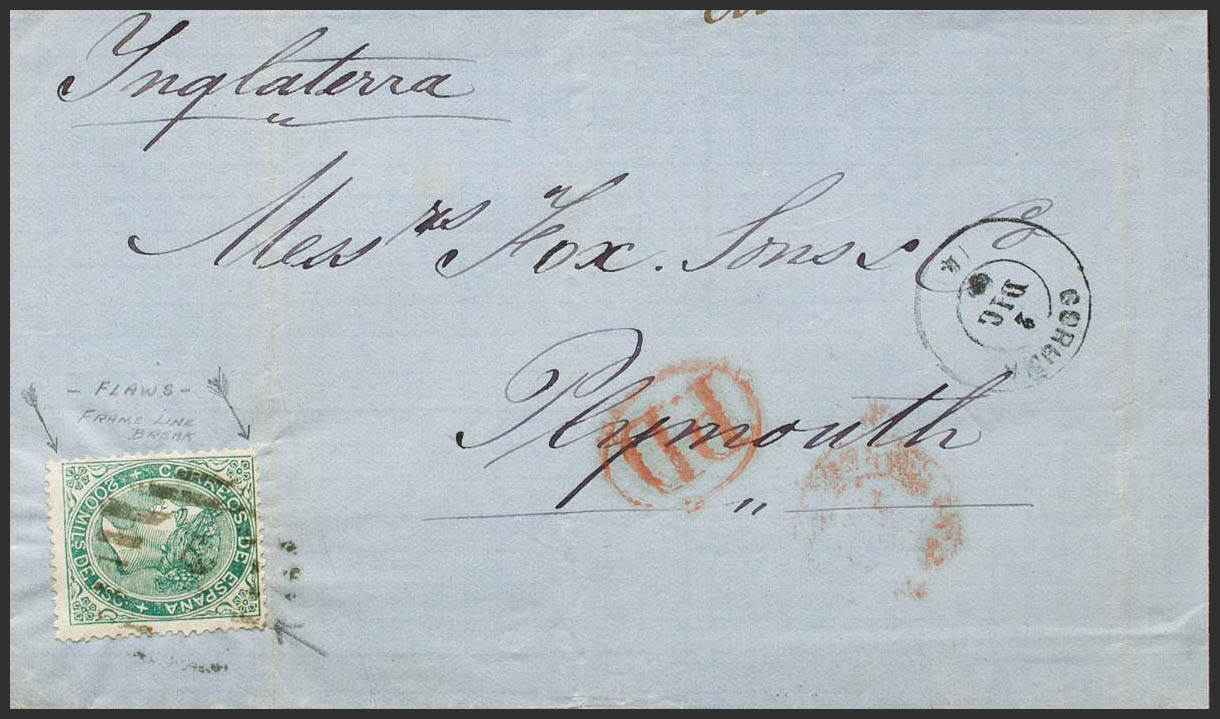 Inglaterra
Messrs Fox. Sons & Co
Plymouth
CORUÑA
2
DIC
P.D
- FLAWS -
FRAME LINE
BREAK
CORREOS DE ESPAÑA
200 MILS DE ESC.